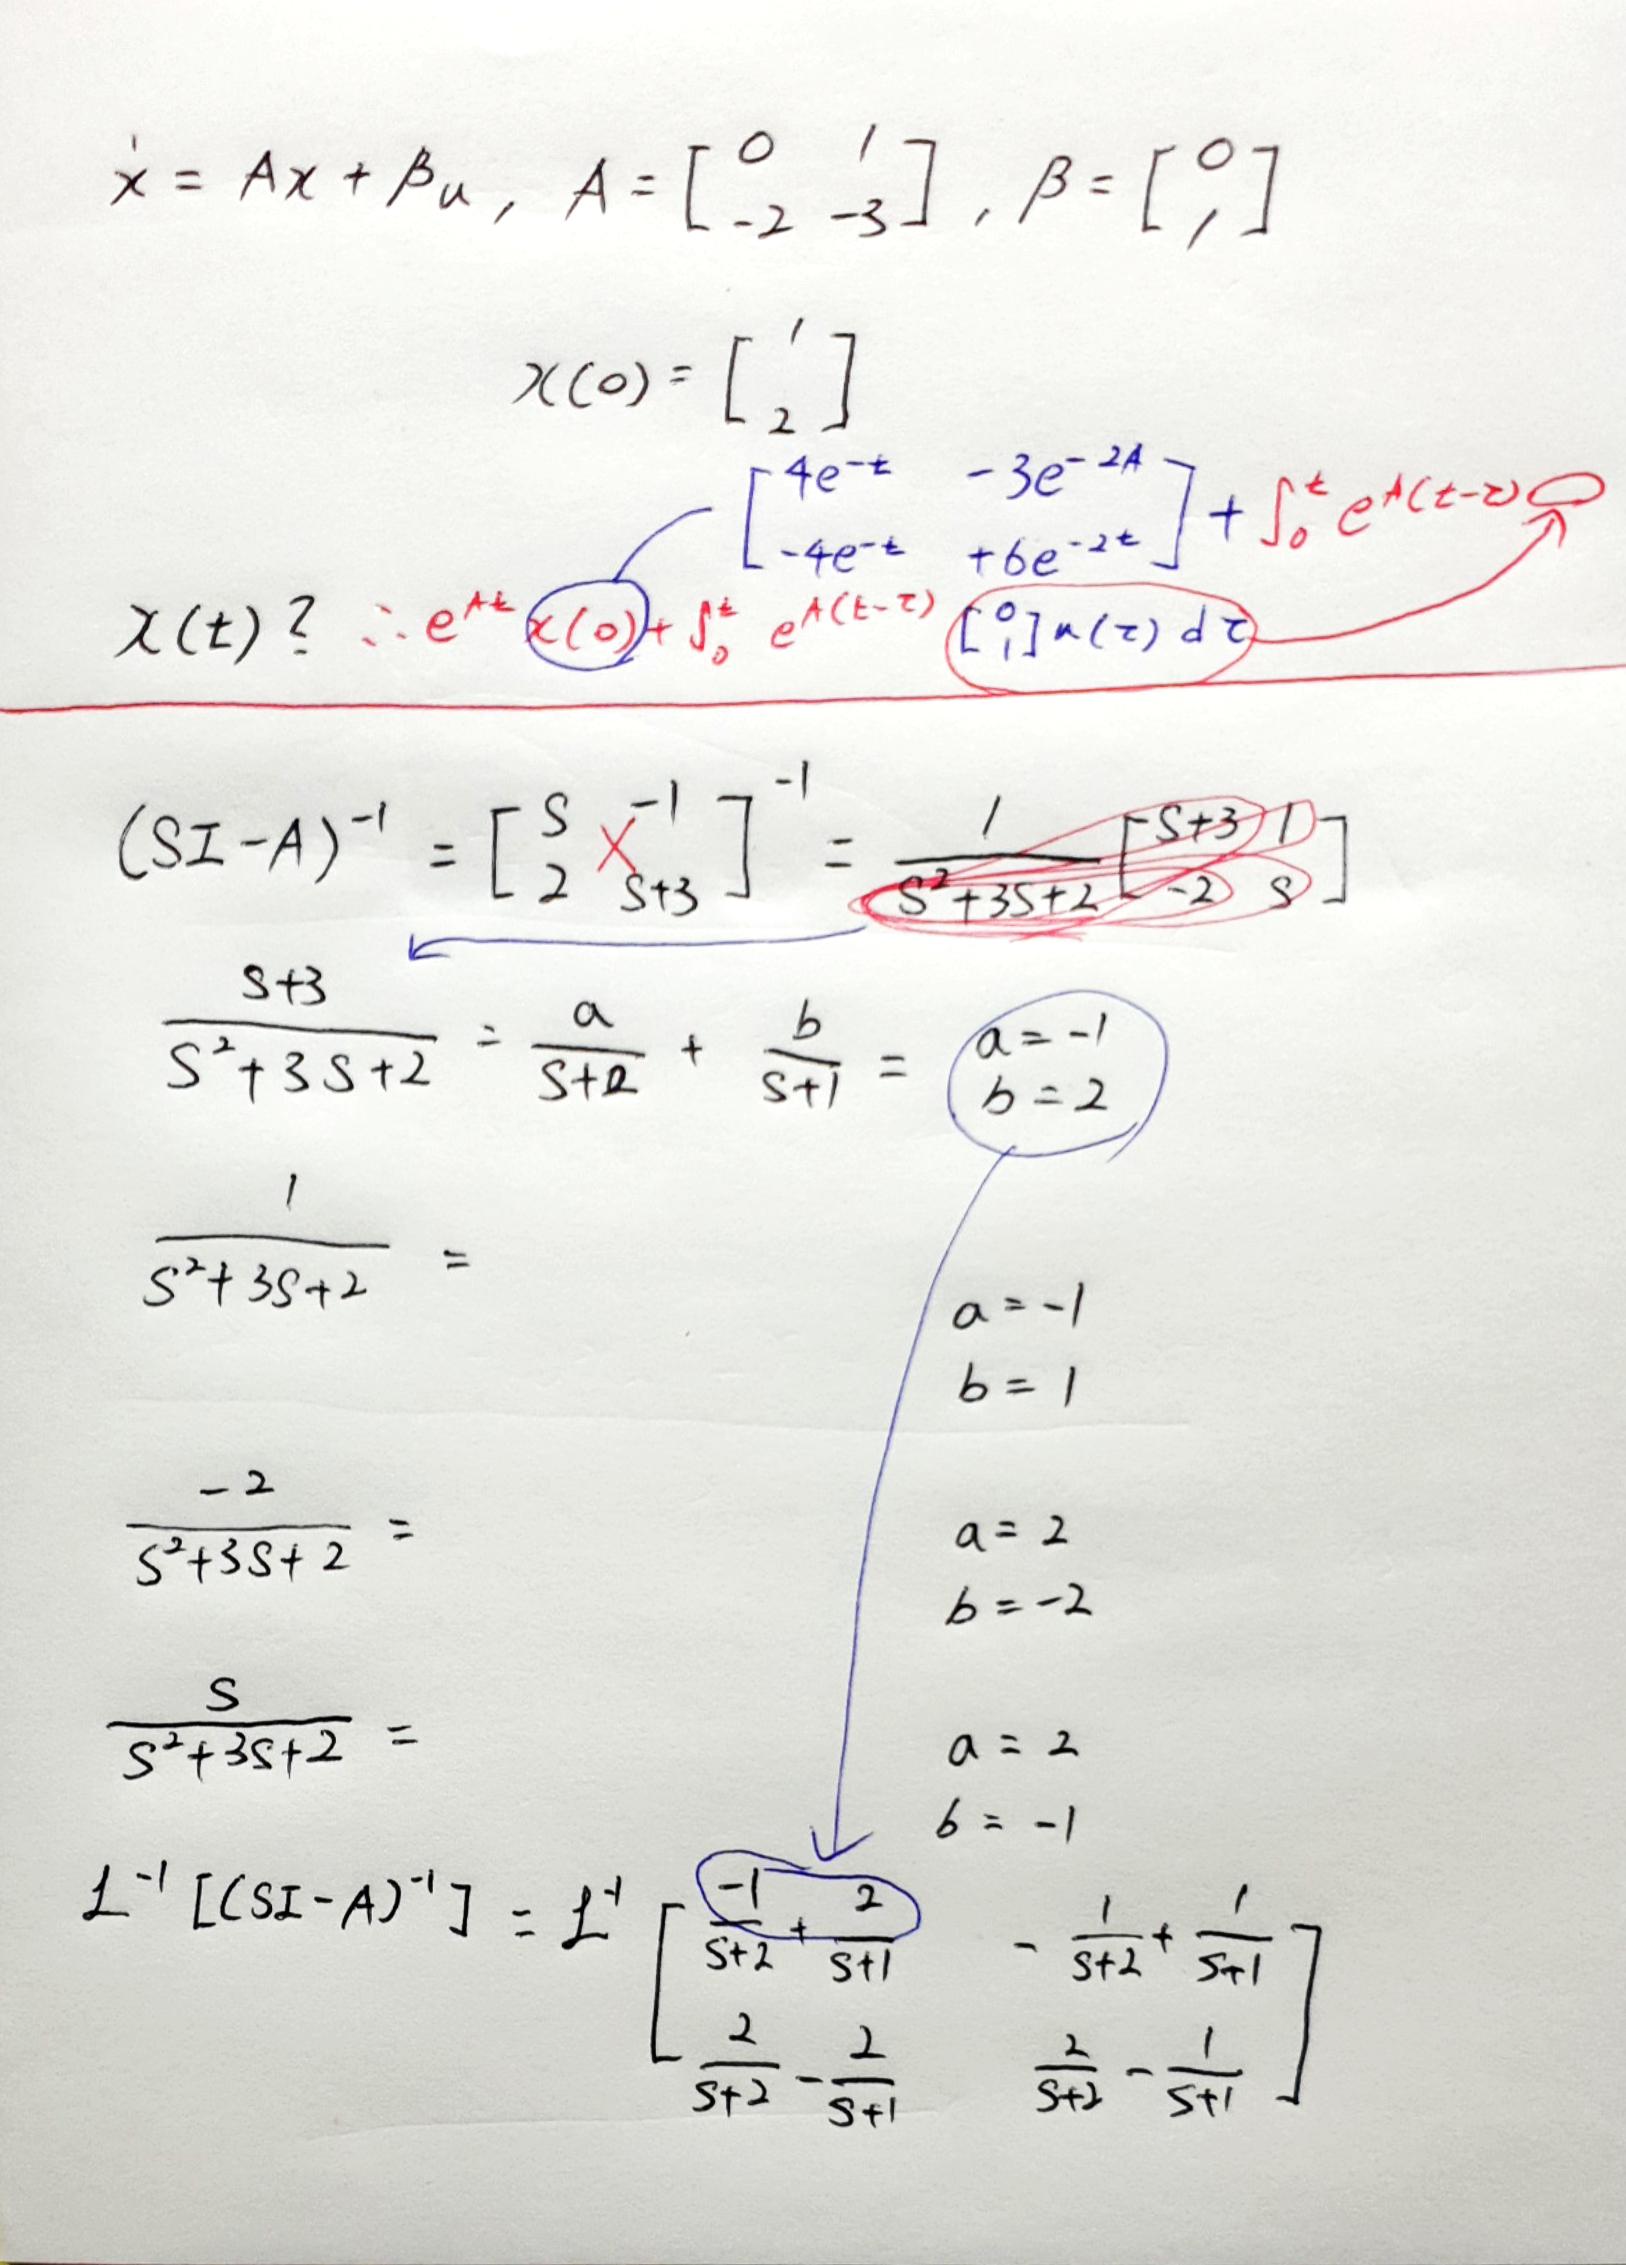 ẋ = Ax + βu, A = [0 1 -2 -3], β = [0 1]
x(0) = [1 2]
[4e^-t -3e^-2A
-4e^-t +6e^-2t] + ∫₀^t e^A(t-τ)
x(t)? ∴ e^At x(0) + ∫₀^t e^A(t-τ) [0 1]u(τ)dτ
(SI-A)^-1 = [S -1 2 S+3]^-1 = 1/(S²+3S+2) [S+3 1 -2 S]
(S+3)/(S²+3S+2) = a/(S+2) + b/(S+1) = a=-1 b=2
1/(S²+3S+2) =
a=-1
b=1
-2/(S²+3S+2) =
a=2
b=-2
S/(S²+3S+2) =
a=2
b=-1
L^-1[(SI-A)^-1] = L^-1 [-1/(S+2) + 2/(S+1) -1/(S+2) + 1/(S+1)
2/(S+2) - 2/(S+1) 2/(S+2) - 1/(S+1)]